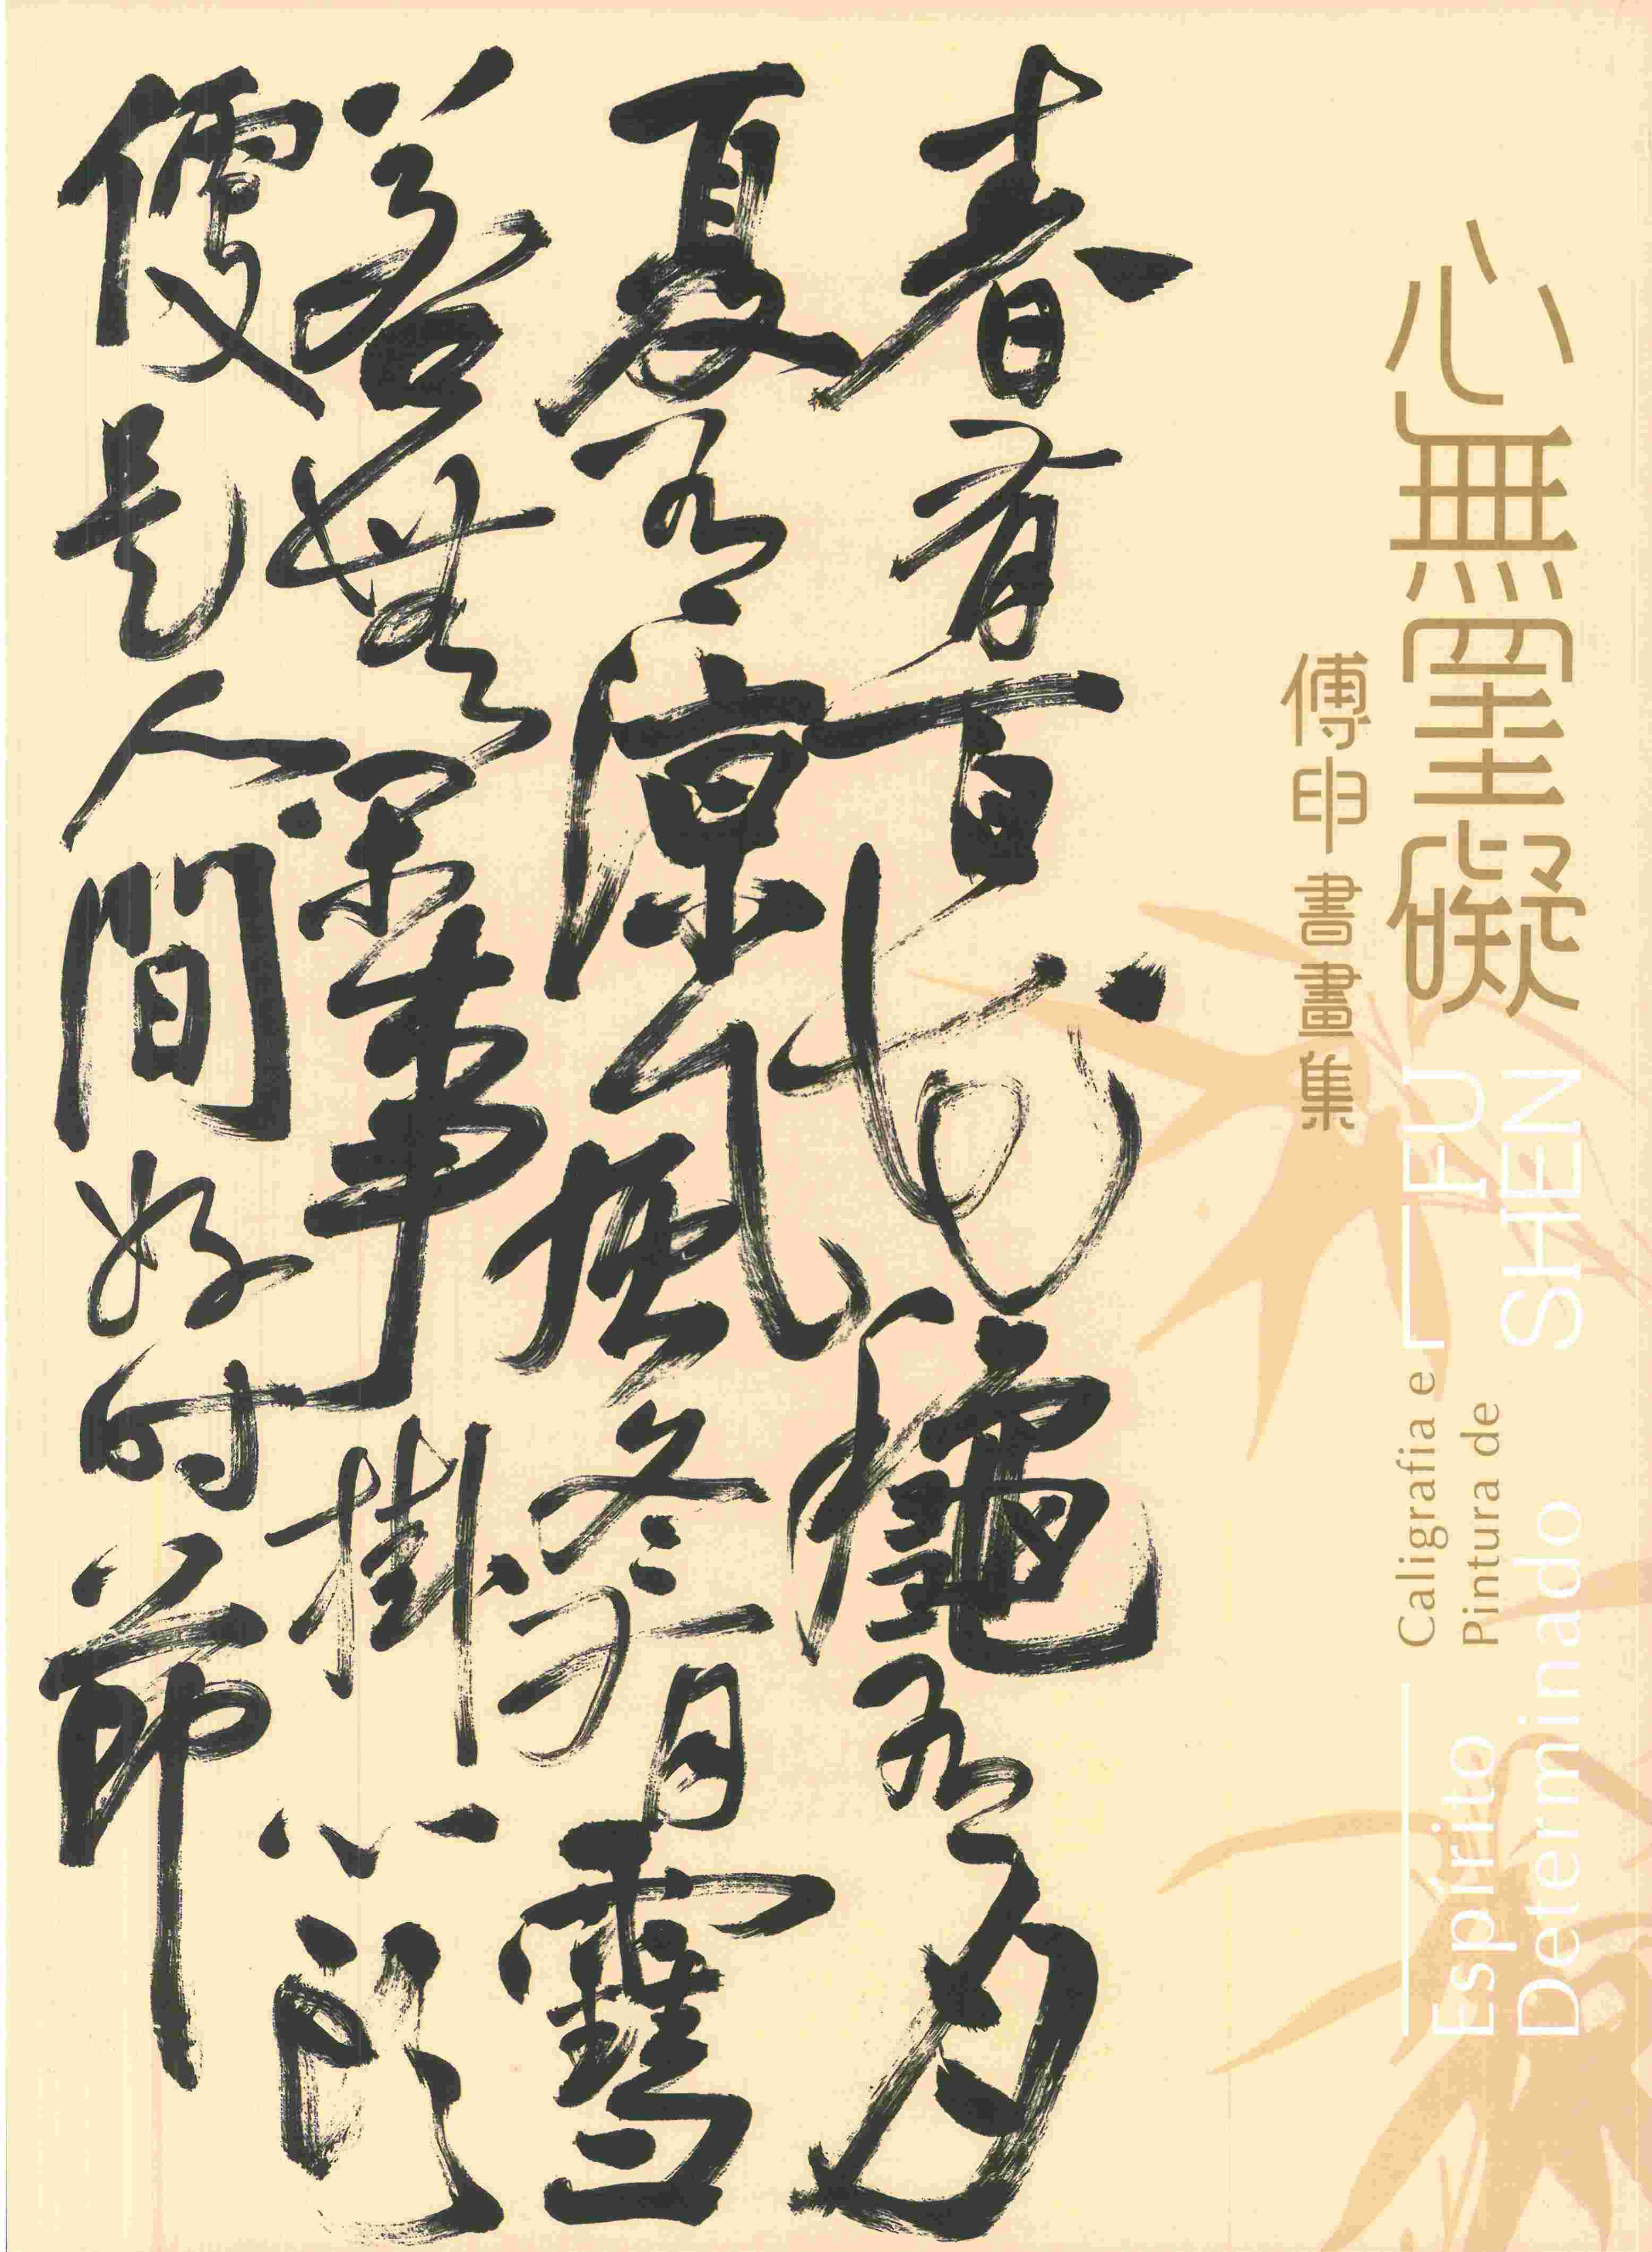 心無罣礙
傅申書畫集
Caligrafia e
Pintura de
FU
SHEN
Espírito
Determinado
春有百花龝有月
夏有涼風冬有雪
若無閑事掛心頭
便是人間好時節